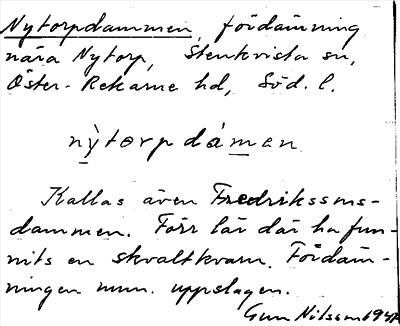 Nytorpdammen, fördämning
nära Nytorp, Stenkvista sn,
Öster-Rekarne hd, Söd. l.
nỳtorpdámen
Kallas även Fredrikssons-
dammen. Förr lär där ha fun-
nits en skvaltkvarn. Fördäm-
ningen num. uppslagen.
Gun Nilsson